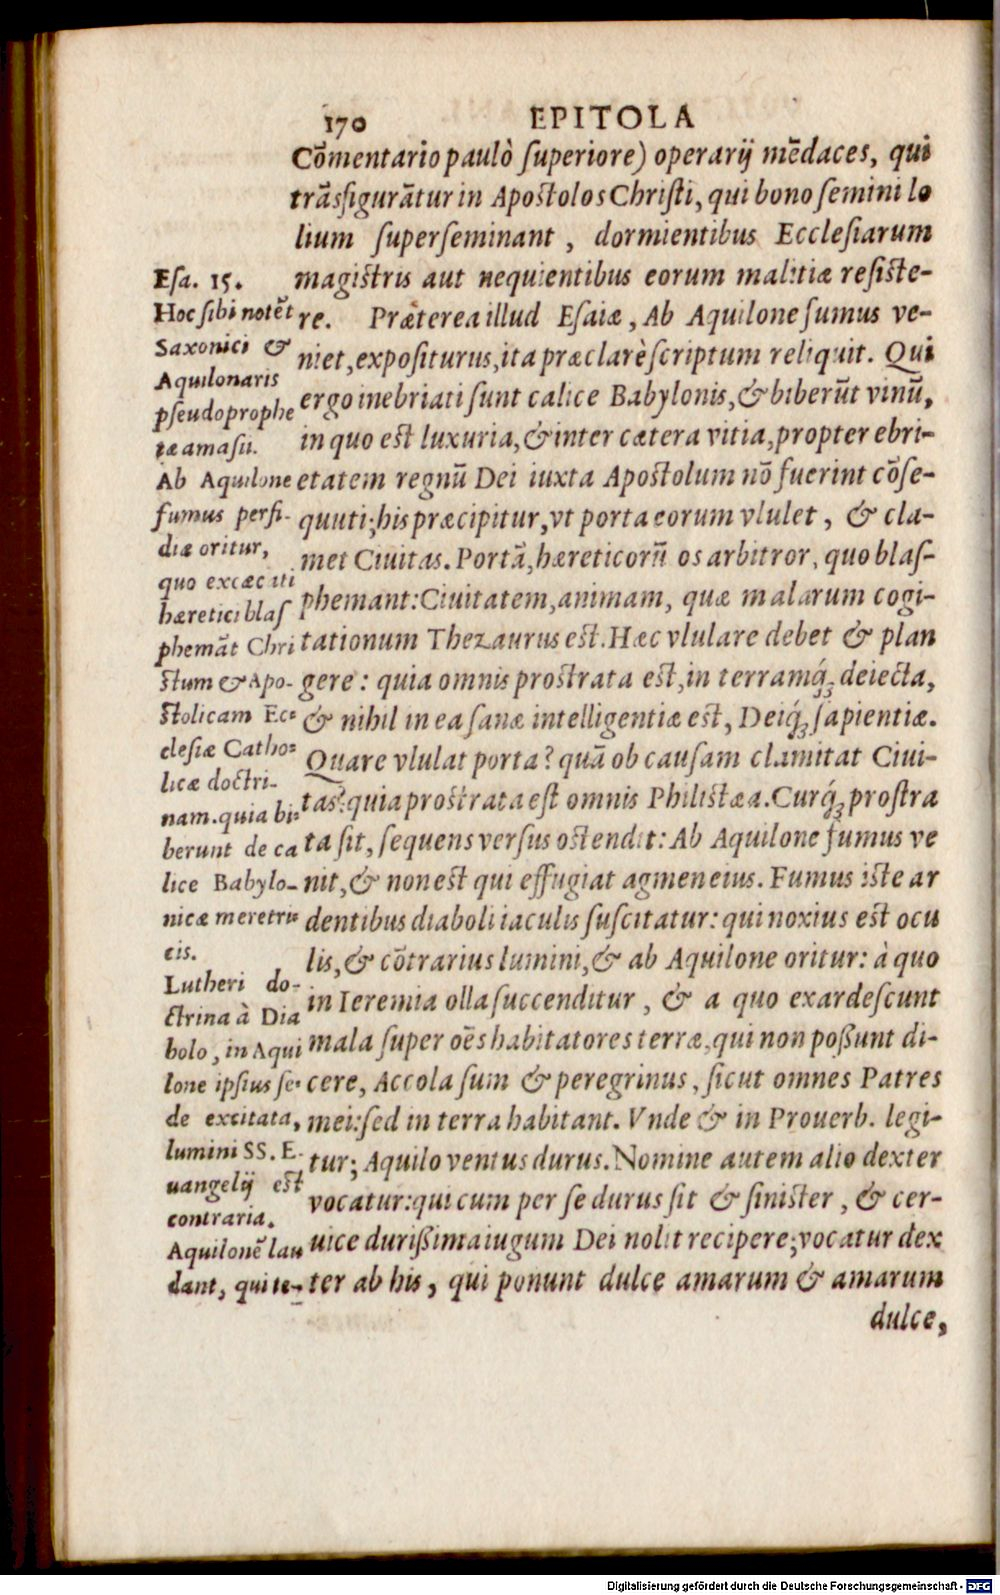 170 EPITOLA
Cõmentario paulò ſuperiore) operarij mẽdaces, qui
trãsfigurãtur in Apoſtolos Chriſti, qui bono ſemini lo
lium ſuperſeminant, dormientibus Eccleſiarum
magiſtris aut nequientibus eorum malitiæ reſiſte-
re. Præterea illud Eſaiæ, Ab Aquilone fumus ve-
niet, expoſiturus, ita præclarè ſcriptum reliquit. Qui
ergo inebriati ſunt calice Babylonis, & biberũt vinũ,
in quo eſt luxuria, & inter cætera vitia, propter ebri-
etatem regnũ Dei iuxta Apoſtolum nõ fuerint cõſe-
quuti; his præcipitur, vt porta eorum vlulet, & cla-
met Ciuitas. Portã, hæreticorũ os arbitror, quo blaſ-
phemant: Ciuitatem, animam, quæ malarum cogi-
tationum Thezaurus eſt. Hæc vlulare debet & plan
gere: quia omnis proſtrata eſt, in terramq́ꝫ deiecta,
& nihil in ea ſanæ intelligentiæ eſt, Deiq́ꝫ ſapientiæ.
Quare vlulat porta? quã ob cauſam clamitat Ciui-
tas? quia proſtrata eſt omnis Philiſtæa. Curq́ꝫ proſtra
ta ſit, ſequens verſus oſtendit: Ab Aquilone fumus ve
nit, & non eſt qui effugiat agmen eius. Fumus iſte ar
dentibus diaboli iaculis ſuſcitatur: qui noxius eſt ocu
lis, & cõtrarius lumini, & ab Aquilone oritur: à quo
in Ieremia olla ſuccenditur, & a quo exardeſcunt
mala ſuper oẽs habitatores terræ, qui non poßunt di-
cere, Accola ſum & peregrinus, ſicut omnes Patres
mei: ſed in terra habitant. Vnde & in Prouerb. legi-
tur; Aquilo ventus durus. Nomine autem alio dexter
vocatur: qui cum per ſe durus ſit & ſiniſter, & cer-
uice durißima iugum Dei nolit recipere; vocatur dex
ter ab his, qui ponunt dulce amarum & amarum
dulce,
Eſa. 15.
Hoc ſibi notẽt
Saxonici &
Aquilonaris
pſeudoprophe
tæ amaſii.
Ab Aquilone
fumus perfi-
diæ oritur,
quo excæcati
hæretici blaſ
phemãt Chri
ſtum & Apo-
ſtolicam Ec-
cleſiæ Catho-
licæ doctri-
nam. quia bi-
berunt de ca
lice Babylo-
nicæ meretri-
cis.
Lutheri do-
ctrina à Dia
bolo, in Aqui
lone ipſius ſe-
de excitata,
lumini SS. E-
uangelij eſt
contraria.
Aquilonẽ lau
dant, qui te-
Digitalisierung gefördert durch die Deutsche Forschungsgemeinschaft - DFG